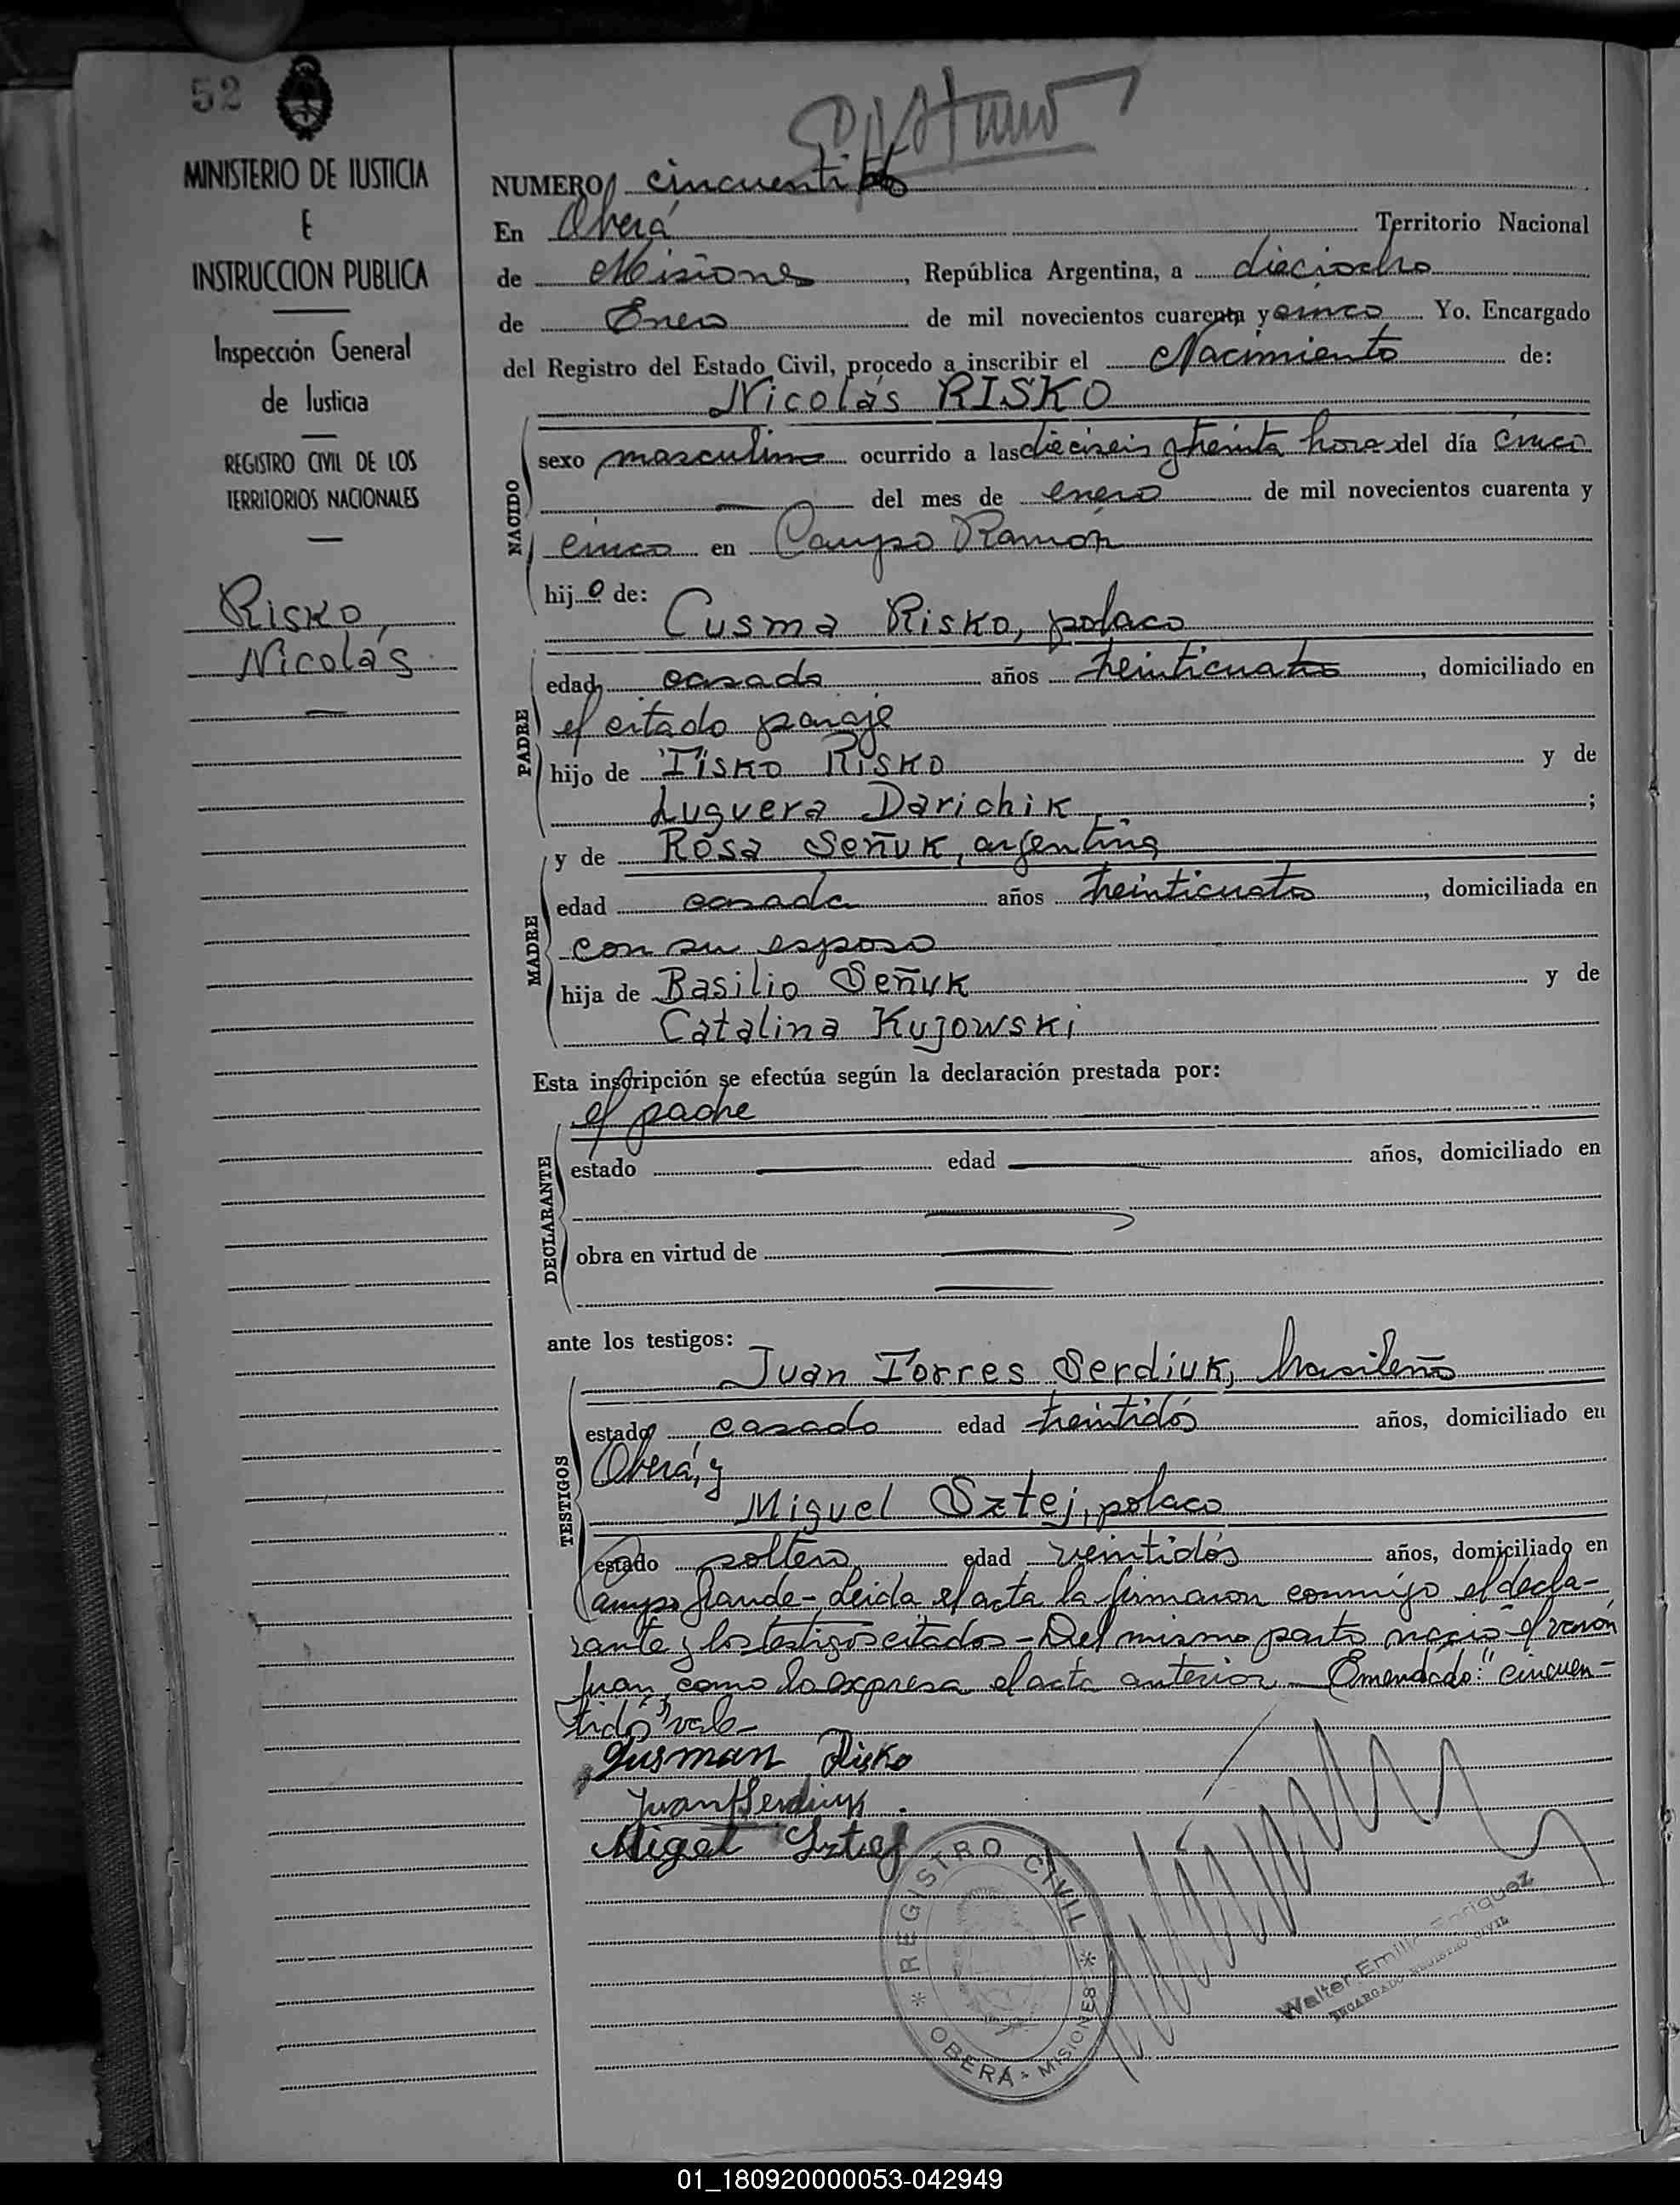 52
MINISTERIO DE JUSTICIA
E
INSTRUCCION PUBLICA
Inspección General
de Justicia
REGISTRO CIVIL DE LOS
TERRITORIOS NACIONALES
Risko,
Nicolás
NUMERO cincuentidós
En Oberá Territorio Nacional
de Misiones, República Argentina, a dieciocho
de Enero de mil novecientos cuarenta y cinco Yo. Encargado
del Registro del Estado Civil, procedo a inscribir el Nacimiento de:
Nicolás RISKO
NACIDO
sexo masculino ocurrido a las dieciseis y treinta hora del día cinco
del mes de enero de mil novecientos cuarenta y
cinco en Campo Ramón
hijo de:
Cusma Risko, polaco
PADRE
edad casado años treinticuatro, domiciliado en
el citado paraje
hijo de Tisko Risko y de
Luguera Darichik;
MADRE
y de Rosa Señuk, argentina
edad casada años treinticuatro, domiciliada en
con su esposo
hija de Basilio Señuk y de
Catalina Kujowski
Esta inscripción se efectúa según la declaración prestada por:
el padre
DECLARANTE
estado edad años, domiciliado en
obra en virtud de
ante los testigos:
TESTIGOS
Juan Torres Serdiuk, brasileño
estado casado edad treintidós años, domiciliado en
Oberá, y
Miguel Sztej, polaco
estado soltero edad veintidós años, domiciliado en
Campo Grande - Leida el acta la firmaron conmigo el decla-
rante y los testigos citados - Del mismo parto nació el varón
Juan, como lo expresa el acta anterior - Emendado: "cincuen-
tidós" vale -
Gusman Risko
Juan T Serdiuk
Migel Sztej
* REGISTRO CIVIL *
OBERÁ - MISIONES
Walter Emilio Enriquez
ENCARGADO REGISTRO CIVIL
01_180920000053-042949